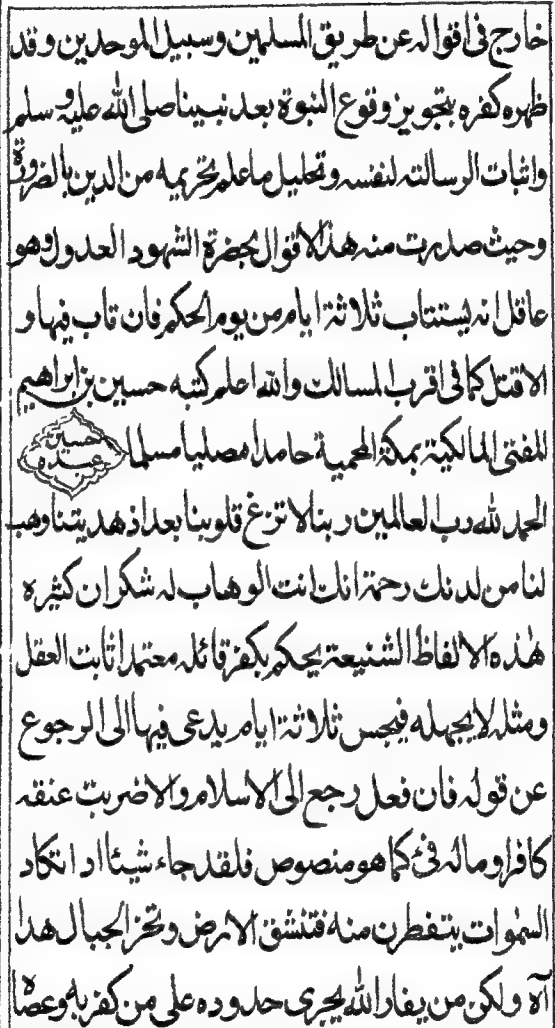 خارج فی اقوالہ عن طریق المسلمین وسبیل الموحدین وقد
ظهر کفره بتجویز وقوع النبوة بعد نبینا صلی الله علیه وسلم
واثبات الرسالتہ لنفسہ وتحلیل ما علم تحریمہ من الدین بالضرورة
وحیث صدرت منہ هذا الاقوال بحضرة الشهود العدول وهو
عاقل انہ یستتاب ثلاثة ایام من یوم الحکم فان تاب فیها و
الا قتل کما فی اقرب المسالک والله اعلم کتبہ حسین بن ابراهیم
المفتی المالکیة بمکة المحمیة حامدا مصلیا مسلما حسین عبده
الحمد لله رب العالمین ربنا لا تزغ قلوبنا بعد اذ هدیتنا وهب
لنا من لدنک رحمة انک انت الوهاب لہ شکران کثیره
هٰذه الالفاظ الشنیعة یحکم بکفر قائلہ معتمدا ثابت العقل
ومثلہ لا یجهلہ فیحبس ثلاثة ایام یدعی فیها الی الرجوع
عن قولہ فان فعل رجع الی الاسلام والا ضربت عنقہ
کافرا ومالہ فئ کما هو منصوص فلقد جاء شیئا ادا تکاد
السمٰوات یتفطرن منہ فتنشق الارض وتخر الجبال هدا
آه ولکن من یغار الله یجری حدوده علی من کفر بہ وعصاه